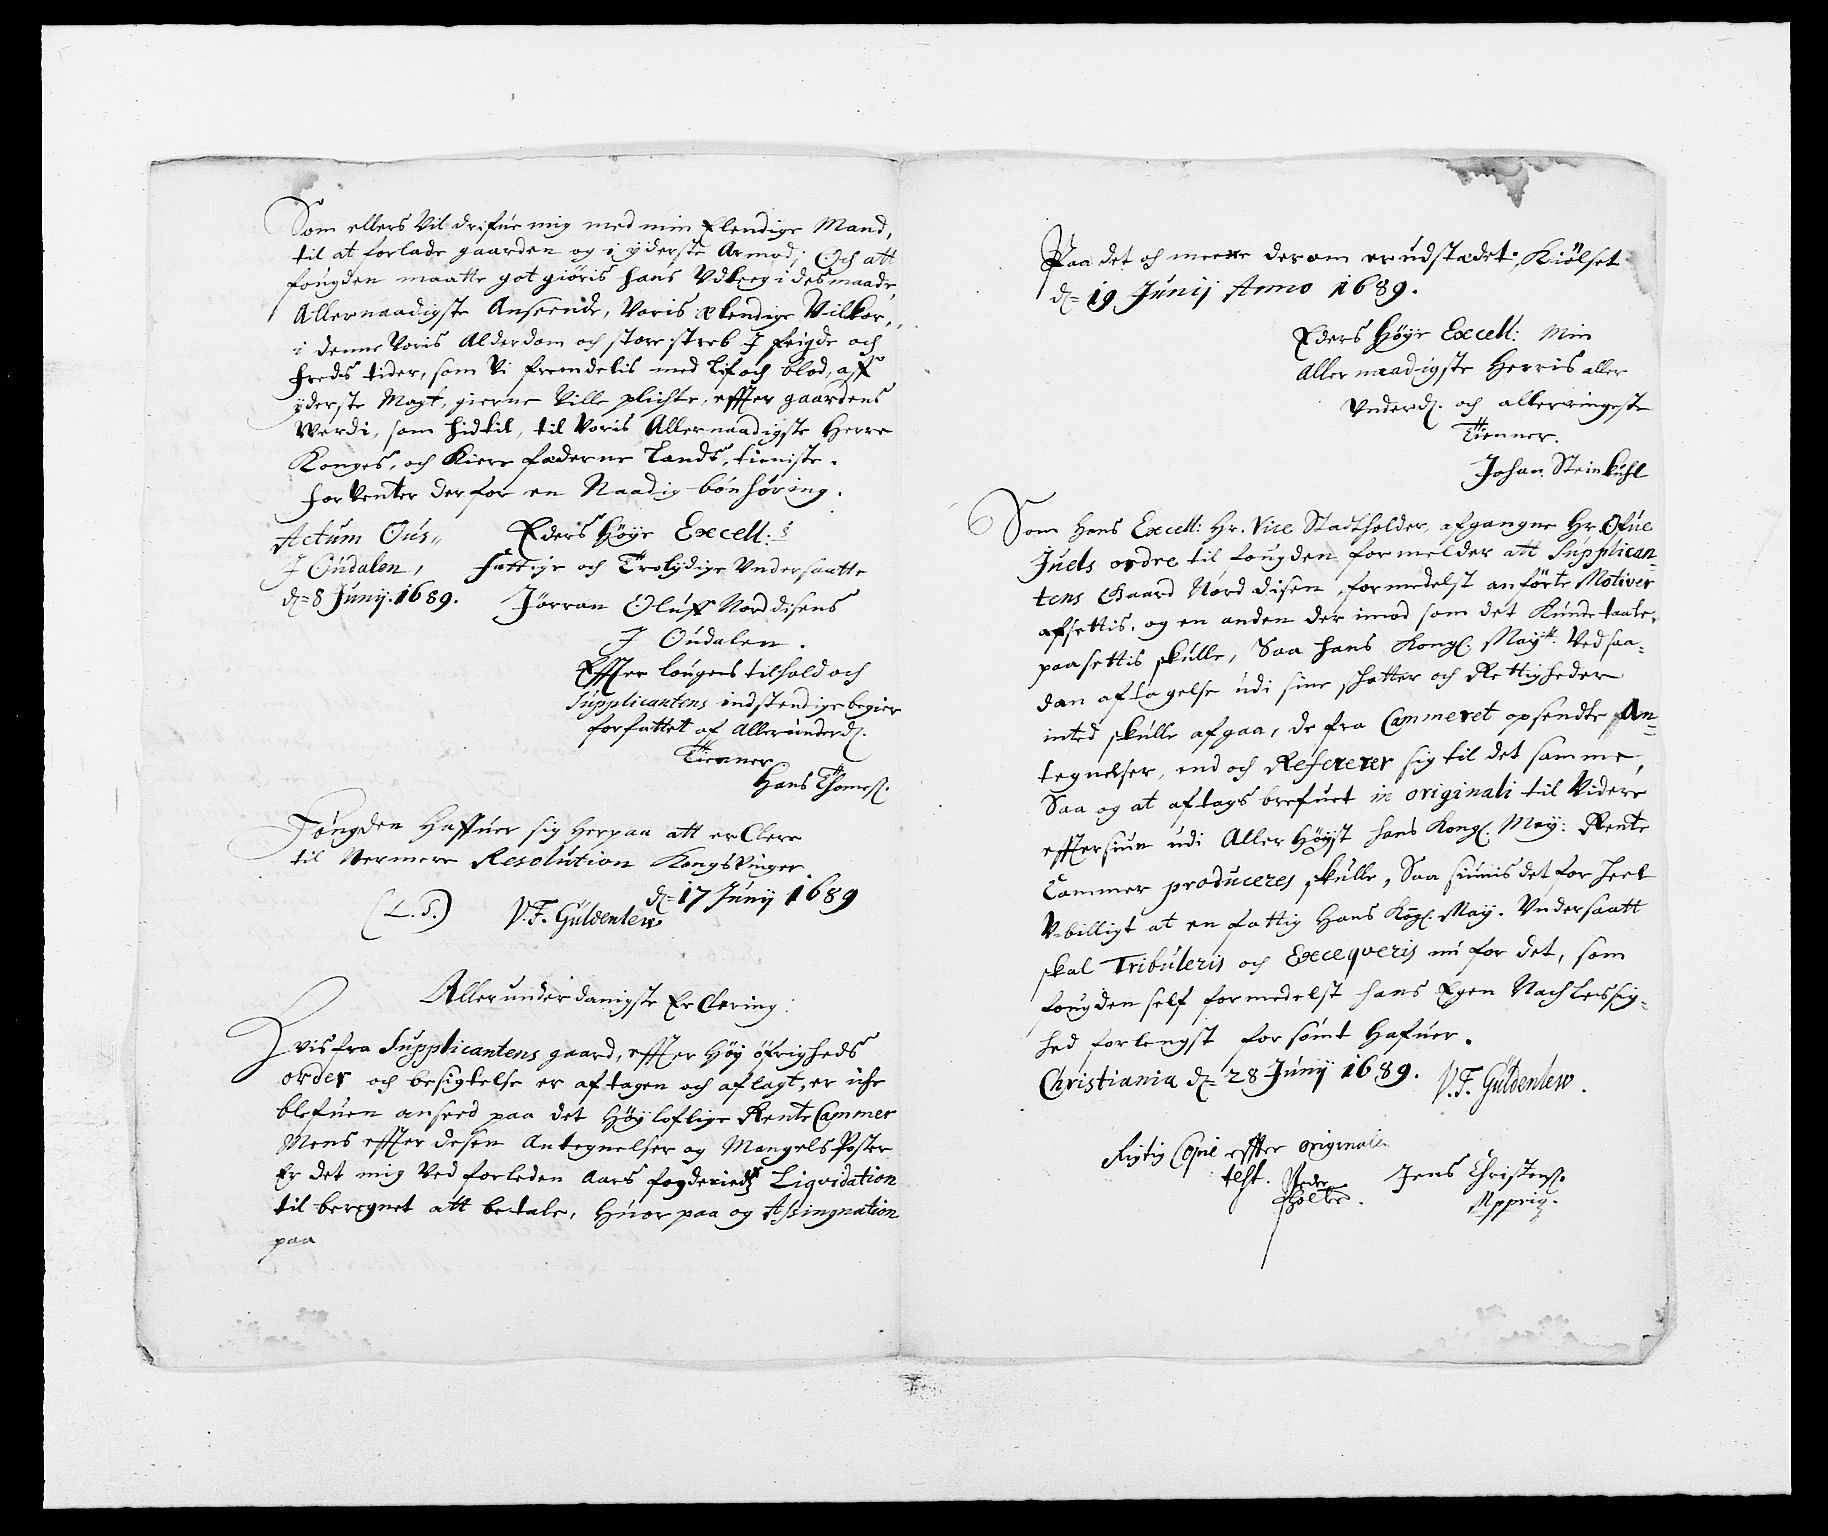 Som ellers Vil drifue mig med min Elendige Mand,
til at forlade gaarden og i yderste Armod; Och att
fougden maatte got giøris hans Udlæg i des maade,
Allernaadigste Anseende, Voris elendige Vilkor,
i denne Voris Alderdom och store streb J feigde och
freds tider, som Vi fremdelis med Lif och blod, aff
yderste Magt, gierne Ville plichte, effter gaardens
Werdi, som hidtil, til Voris Allernaadigste Herre
Konges, och Kiere fæderne Lands, tieniste.
forVenter derfor en Naadig bønhøring.
Actum Ous„
J Oudalen,
d= 8 Junij. 1689.
Eders Høye Excell:s
fattige och Trolydige Undersaatte
Jørran Oluff Nord disens
J Oudalen.
Effter lougens tilhold och
Supplicantens indstendige begier
forfattet af Allerunderd.
Tienner
Hans Thomeß.
Fougden Haffuer sig herpaa att erClere
til Nermere Resolution Kongs Vinger
d= 17 Junij 1689
(L.S.) V.F. Güldenlew
Allerunderdanigste ErClering:
Hvis fra Supplicantens gaard, effter Høy öfrigheds
order och besigtelse er aftagen och aflagt, er iche
blefuen anseed paa det Høyloflige Rente Cammer
Mens effter desen Antegnelser og Mangels Poster
Er det mig Ved forleden Aars fogderiedß Liqvidation
til beregnet att betale, Huor paa og Assingnation
paa
Paa det och meere derom er udstædet. Kiölset
d= 19 Junij Anno 1689.
Eders Høye Excell: Min
Allernaadigste Herris aller
Underd. och allerringeste
Tienner.
Johan Steinkuhl
Som Hans Excell: Hr. Vice Stadtholder, afgangne Hr. Ofue
Juels ordre til fougden formelder att Supplican-
tens Gaard Nord disen, formedelst anförte Motiver
afsettis, og en anden der imod som det Kunde taale,
paasettis skulle, Saa hans Kongl. Mayt. Ved saa-
dan aftagelse udi sine shatter och Rettigheder
inted skulle afgaa, de fra Cammeret opsendte An-
tegnelser, end och Refererer sig til det samme,
Saa og at aftags brefuet in originali til Videre
efftersiun udi AllerHøyst hans Kongl. May: Rente
Cammer produceres skulle, Saa siunis det for heel
U-billigt at en fattig Hans Kogl. May. Undersaatt
skal Tribuleris och Execqveris nu for det, som
fougden self formedelst hans Egen Nachlessig-
hed forlengst forsömt Hafuer.
Christiania d= 28 Junij 1689. V.F. Güldenlew.
Rigtig Copie effter originalen
test. Peder
Holter.
Jens Christenß.